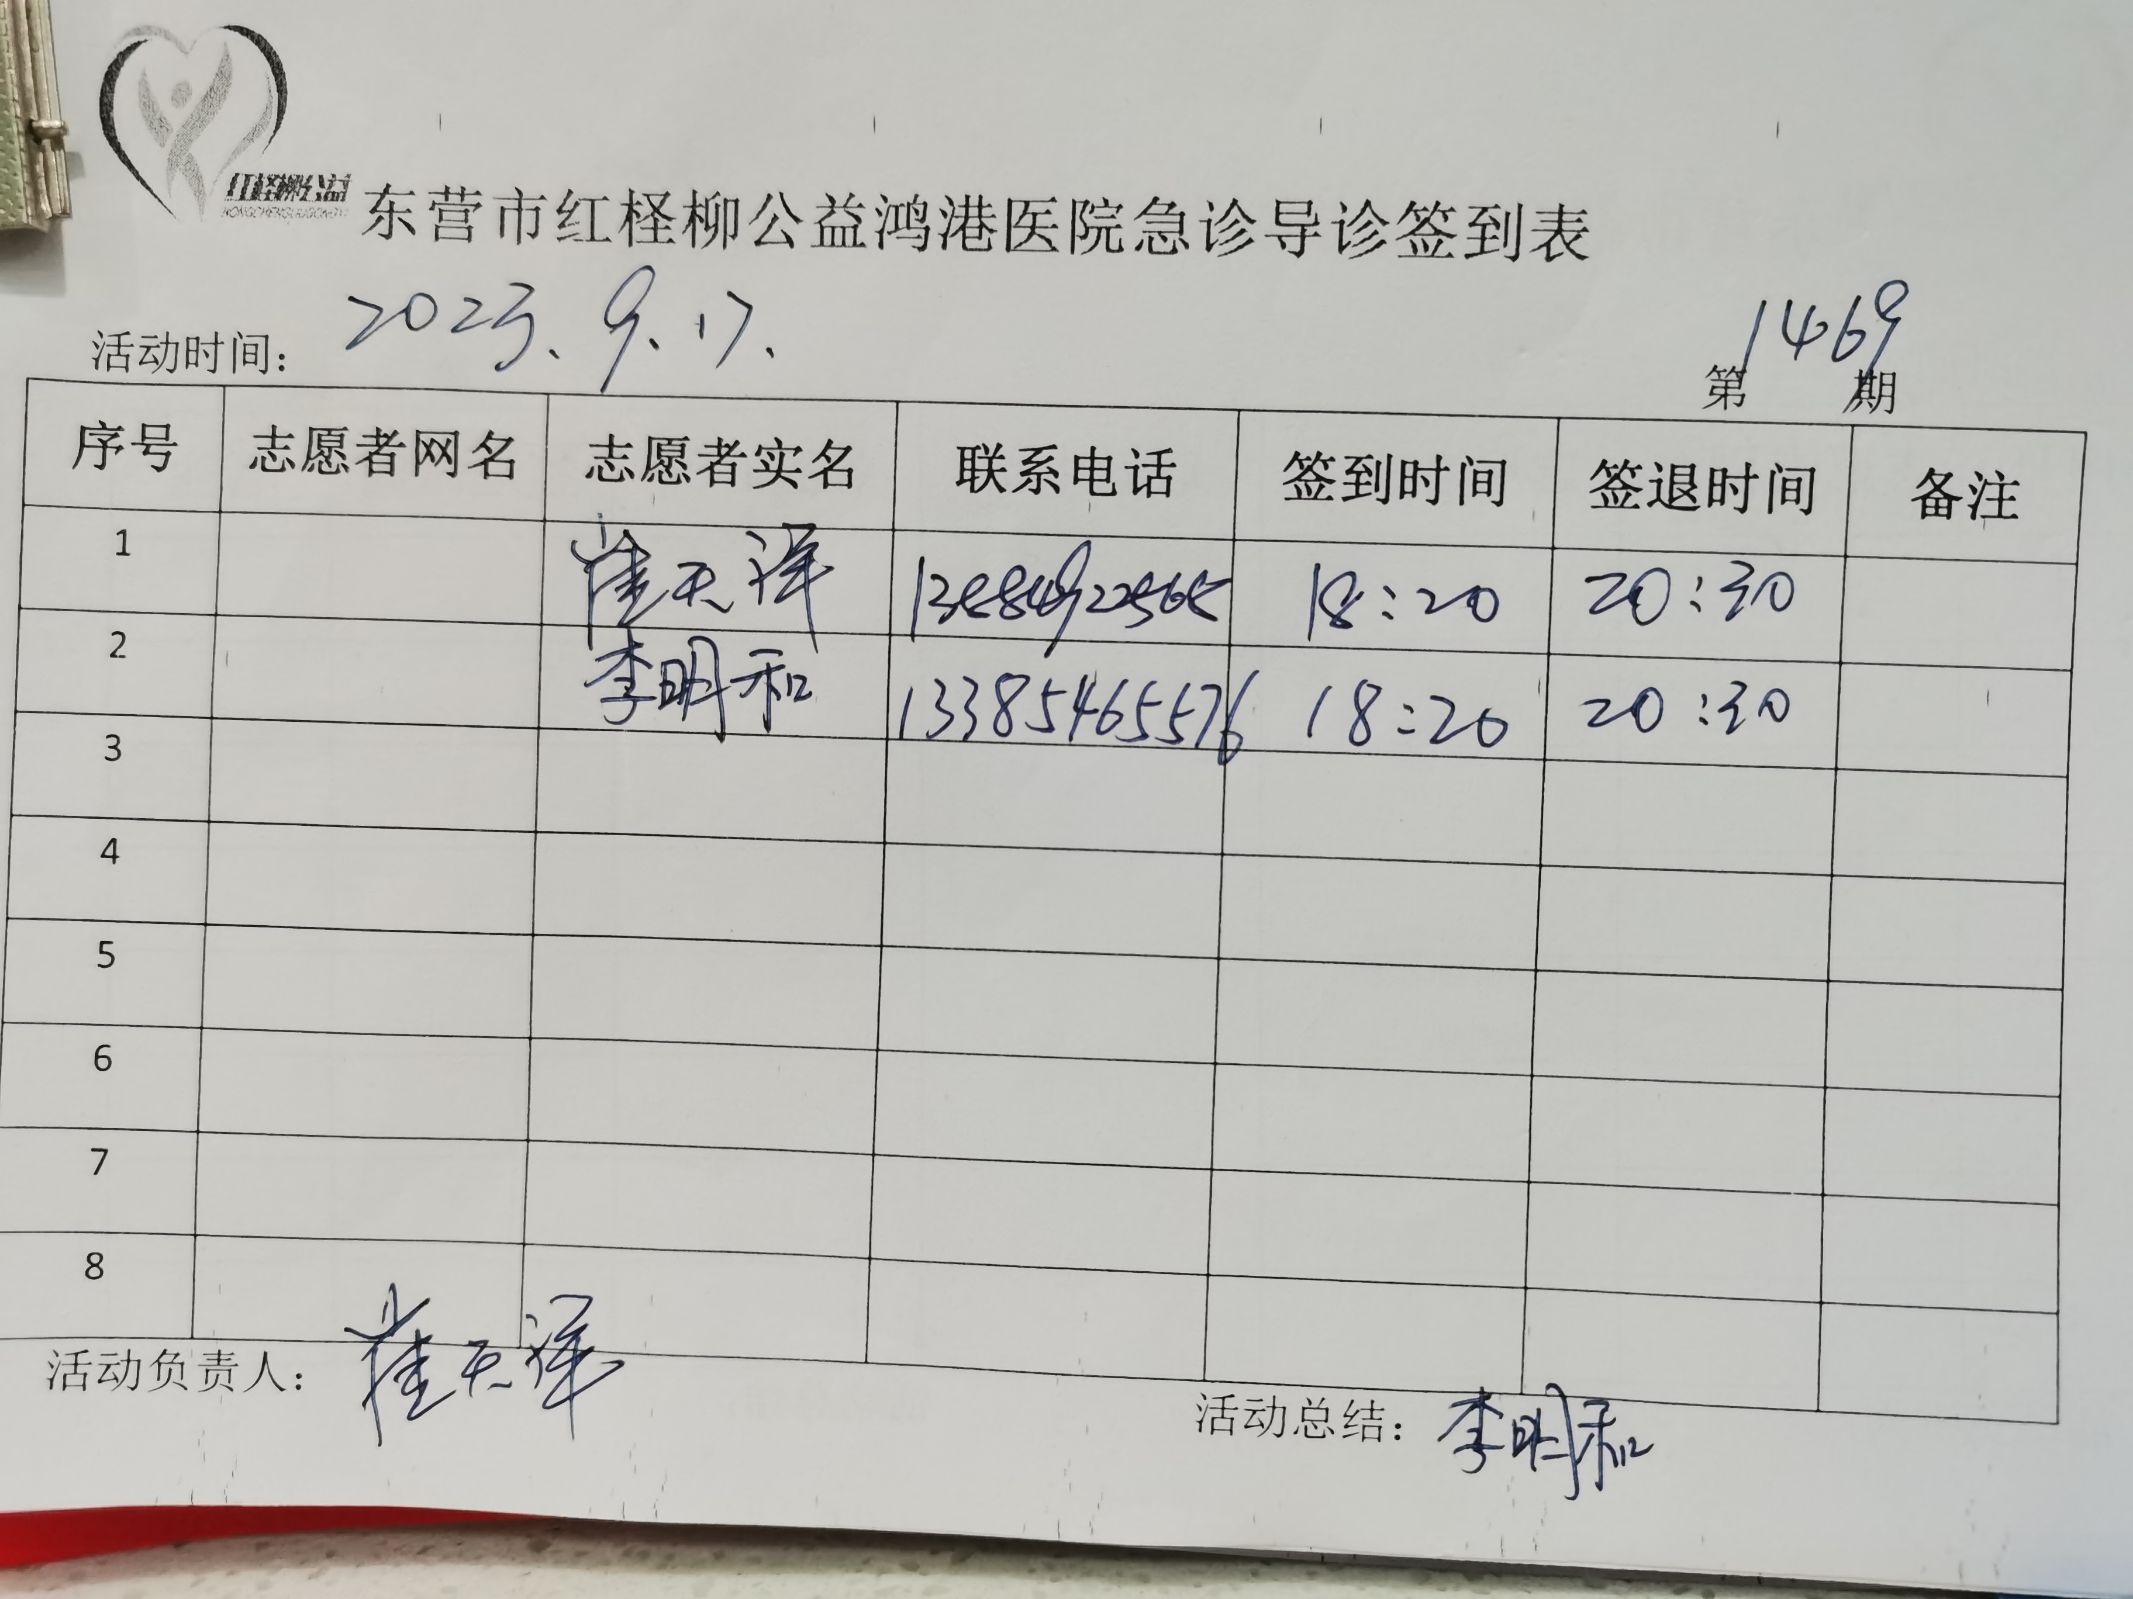 红柽柳公益
东营市红柽柳公益鸿港医院急诊导诊签到表
活动时间: 2023.9.17.
第1469期
序号 志愿者网名 志愿者实名 联系电话 签到时间 签退时间 备注
1 崔天洋 18:20 20:30
2 李明和 13385465576 18:20 20:30
3
4
5
6
7
8
活动负责人: 崔天洋
活动总结: 李明和